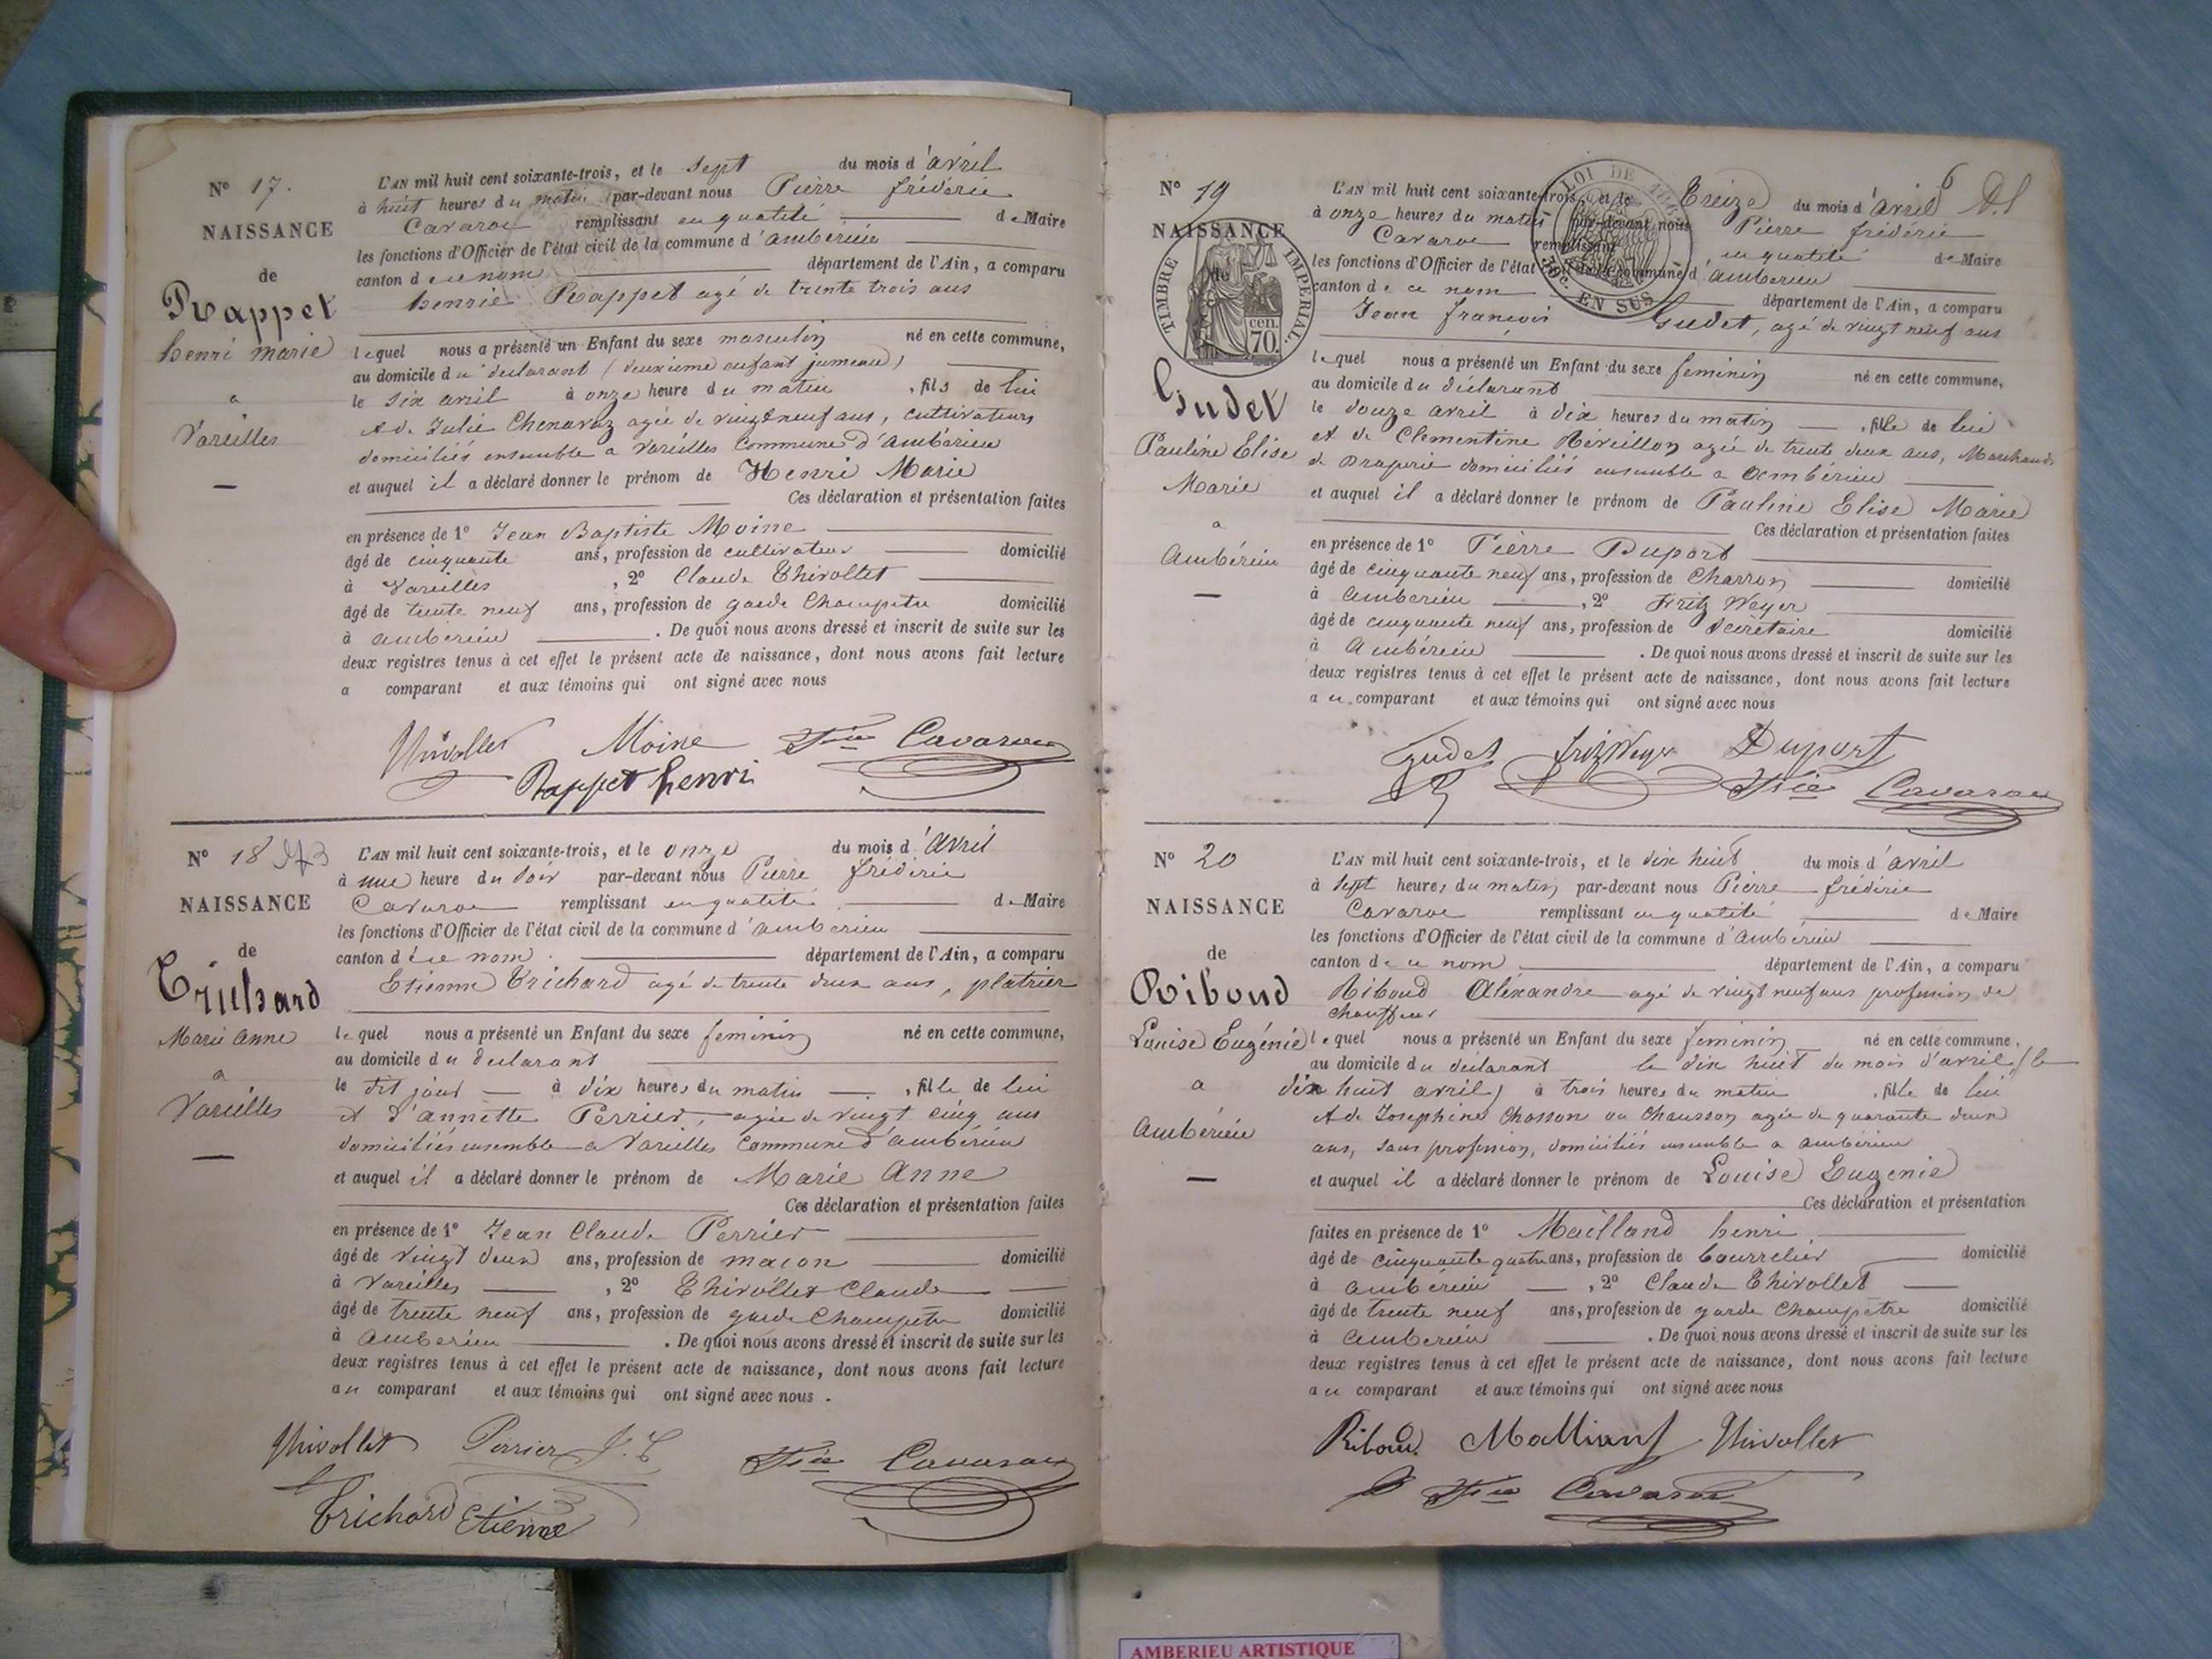 N° 17.
NAISSANCE
de
Rappet
henri marie
a
Vareilles
L'AN mil huit cent soixante-trois, et le sept du mois d'avril
à huit heures du matin par-devant nous Pierre fréderic
Cavaroc remplissant en qualité de Maire
les fonctions d'Officier de l'état civil de la commune d'ambérieu
canton de ce nom département de l'Ain, a comparu
henrie Rappet agé de trente trois ans
lequel nous a présenté un Enfant du sexe masculin né en cette commune,
au domicile du déclarant (deuxieme enfant jumeau)
le six avril à onze heure du matin, fils de lui
et de Julie Chenavaz agée de vingt neuf ans, cultivateurs
domiciliés ensemble a Vareilles Commune d'ambérieu
et auquel il a déclaré donner le prénom de Henri Marie
Ces déclaration et présentation faites
en présence de 1° Jean Baptiste Moine
âgé de cinquante ans, profession de cultivateur domicilié
à Vareilles, 2° Claude Thivollet
âgé de trente neuf ans, profession de garde Champetre domicilié
à ambérieu. De quoi nous avons dressé et inscrit de suite sur les
deux registres tenus à cet effet le présent acte de naissance, dont nous avons fait lecture
a comparant et aux témoins qui ont signé avec nous
Thivollet Moine Fic Cavaroc
Rappet henri
N° 18
NAISSANCE
de
Trichard
Marie anne
a
Vareilles
L'AN mil huit cent soixante-trois, et le onze du mois d'avril
à une heure du soir par-devant nous Pierre fréderic
Cavaroc remplissant en qualité de Maire
les fonctions d'Officier de l'état civil de la commune d'ambérieu
canton de ce nom département de l'Ain, a comparu
Etienne Trichard agé de trente deux ans, platrier
lequel nous a présenté un Enfant du sexe feminin né en cette commune,
au domicile du déclarant
le dit jour à dix heures du matin, fille de lui
et d'annette Perrier, agée de vingt cinq ans
domiciliés ensemble a Vareilles Commune d'ambérieu
et auquel il a déclaré donner le prénom de Marie Anne
Ces déclaration et présentation faites
en présence de 1° Jean Claude Perrier
âgé de vingt deux ans, profession de macon domicilié
à Vareilles, 2° Thivollet Claude
âgé de trente neuf ans, profession de garde Champetre domicilié
à ambérieu. De quoi nous avons dressé et inscrit de suite sur les
deux registres tenus à cet effet le présent acte de naissance, dont nous avons fait lecture
au comparant et aux témoins qui ont signé avec nous.
Thivollet Perrier J. C Fic Cavaroc
Trichard Etienne
6
N° 19
NAISSANCE
de
TIMBRE IMPERIAL.
70 cen.
LOI DE 186
EN SUS
Gudet
Pauline Elise
Marie
a
Ambérieu
L'AN mil huit cent soixante-trois, et le Treize du mois d'avril
à onze heures du matin par-devant nous Pierre fréderic
Cavaroc remplissant en qualité de Maire
les fonctions d'Officier de l'état civil de la commune d'ambérieu
canton de ce nom département de l'Ain, a comparu
Jean françois Gudet, agé de vingt neuf ans
lequel nous a présenté un Enfant du sexe feminin né en cette commune,
au domicile du déclarant
le douze avril à dix heures du matin, fille de lui
et de Clementine Réveillon agée de trente deux ans, Marchands
de Draperie domiciliés ensemble a ambérieu
et auquel il a déclaré donner le prénom de Pauline Elise Marie
Ces déclaration et présentation faites
en présence de 1° Pierre Duport
âgé de cinquante neuf ans, profession de Charron domicilié
à ambérieu, 2° Fritz Weger
âgé de cinquante neuf ans, profession de Secrétaire domicilié
à Ambérieu. De quoi nous avons dressé et inscrit de suite sur les
deux registres tenus à cet effet le présent acte de naissance, dont nous avons fait lecture
au comparant et aux témoins qui ont signé avec nous
Gudet fritz Weger Duport
Fic Cavaroc
N° 20
NAISSANCE
de
Riboud
Louise Eugénie
a
Ambérieu
L'AN mil huit cent soixante-trois, et le dix huit du mois d'avril
à sept heures du matin par-devant nous Pierre fréderic
Cavaroc remplissant en qualité de Maire
les fonctions d'Officier de l'état civil de la commune d'Ambérieu
canton de ce nom département de l'Ain, a comparu
Riboud Aléxandre agé de vingt neuf ans profession de
chauffeur
lequel nous a présenté un Enfant du sexe feminin né en cette commune,
au domicile du déclarant le dix huit du mois d'avril (le
dix huit avril) à trois heures du matin, fille de lui
et de Josephine Chosson ou Chausson agée de quarante deux
ans, sans profession, domiciliés ensemble a ambérieu
et auquel il a déclaré donner le prénom de Louise Eugenie
Ces déclaration et présentation
faites en présence de 1° Mailland henri
âgé de cinquante quatre ans, profession de bourrelier domicilié
à ambérieu, 2° Claude Thivollet
âgé de trente neuf ans, profession de garde Champètre domicilié
à ambérieu. De quoi nous avons dressé et inscrit de suite sur les
deux registres tenus à cet effet le présent acte de naissance, dont nous avons fait lecture
au comparant et aux témoins qui ont signé avec nous
Riboud Thivollet
Fic Cavaroc
AMBERIEU ARTISTIQUE